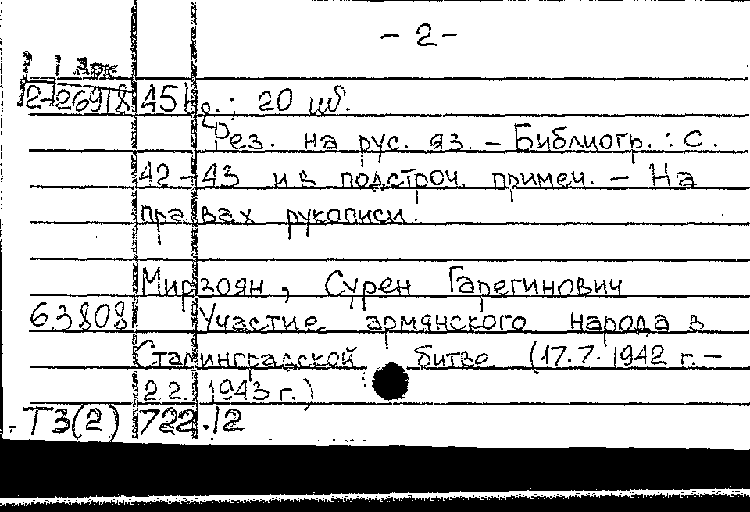 - 2 -
Арк
2-26918 45 с. ; 20 см.
Рез. на рус. яз. - Библиогр. : с.
42-43 и в подстроч. примеч. - На
правах рукописи.
Мирзоян, Сурен Гарегинович
63808 Участие армянского народа в
Сталинградской битве (17.7.1942 г. -
2.2.1943 г.)
Т3(2)722.12